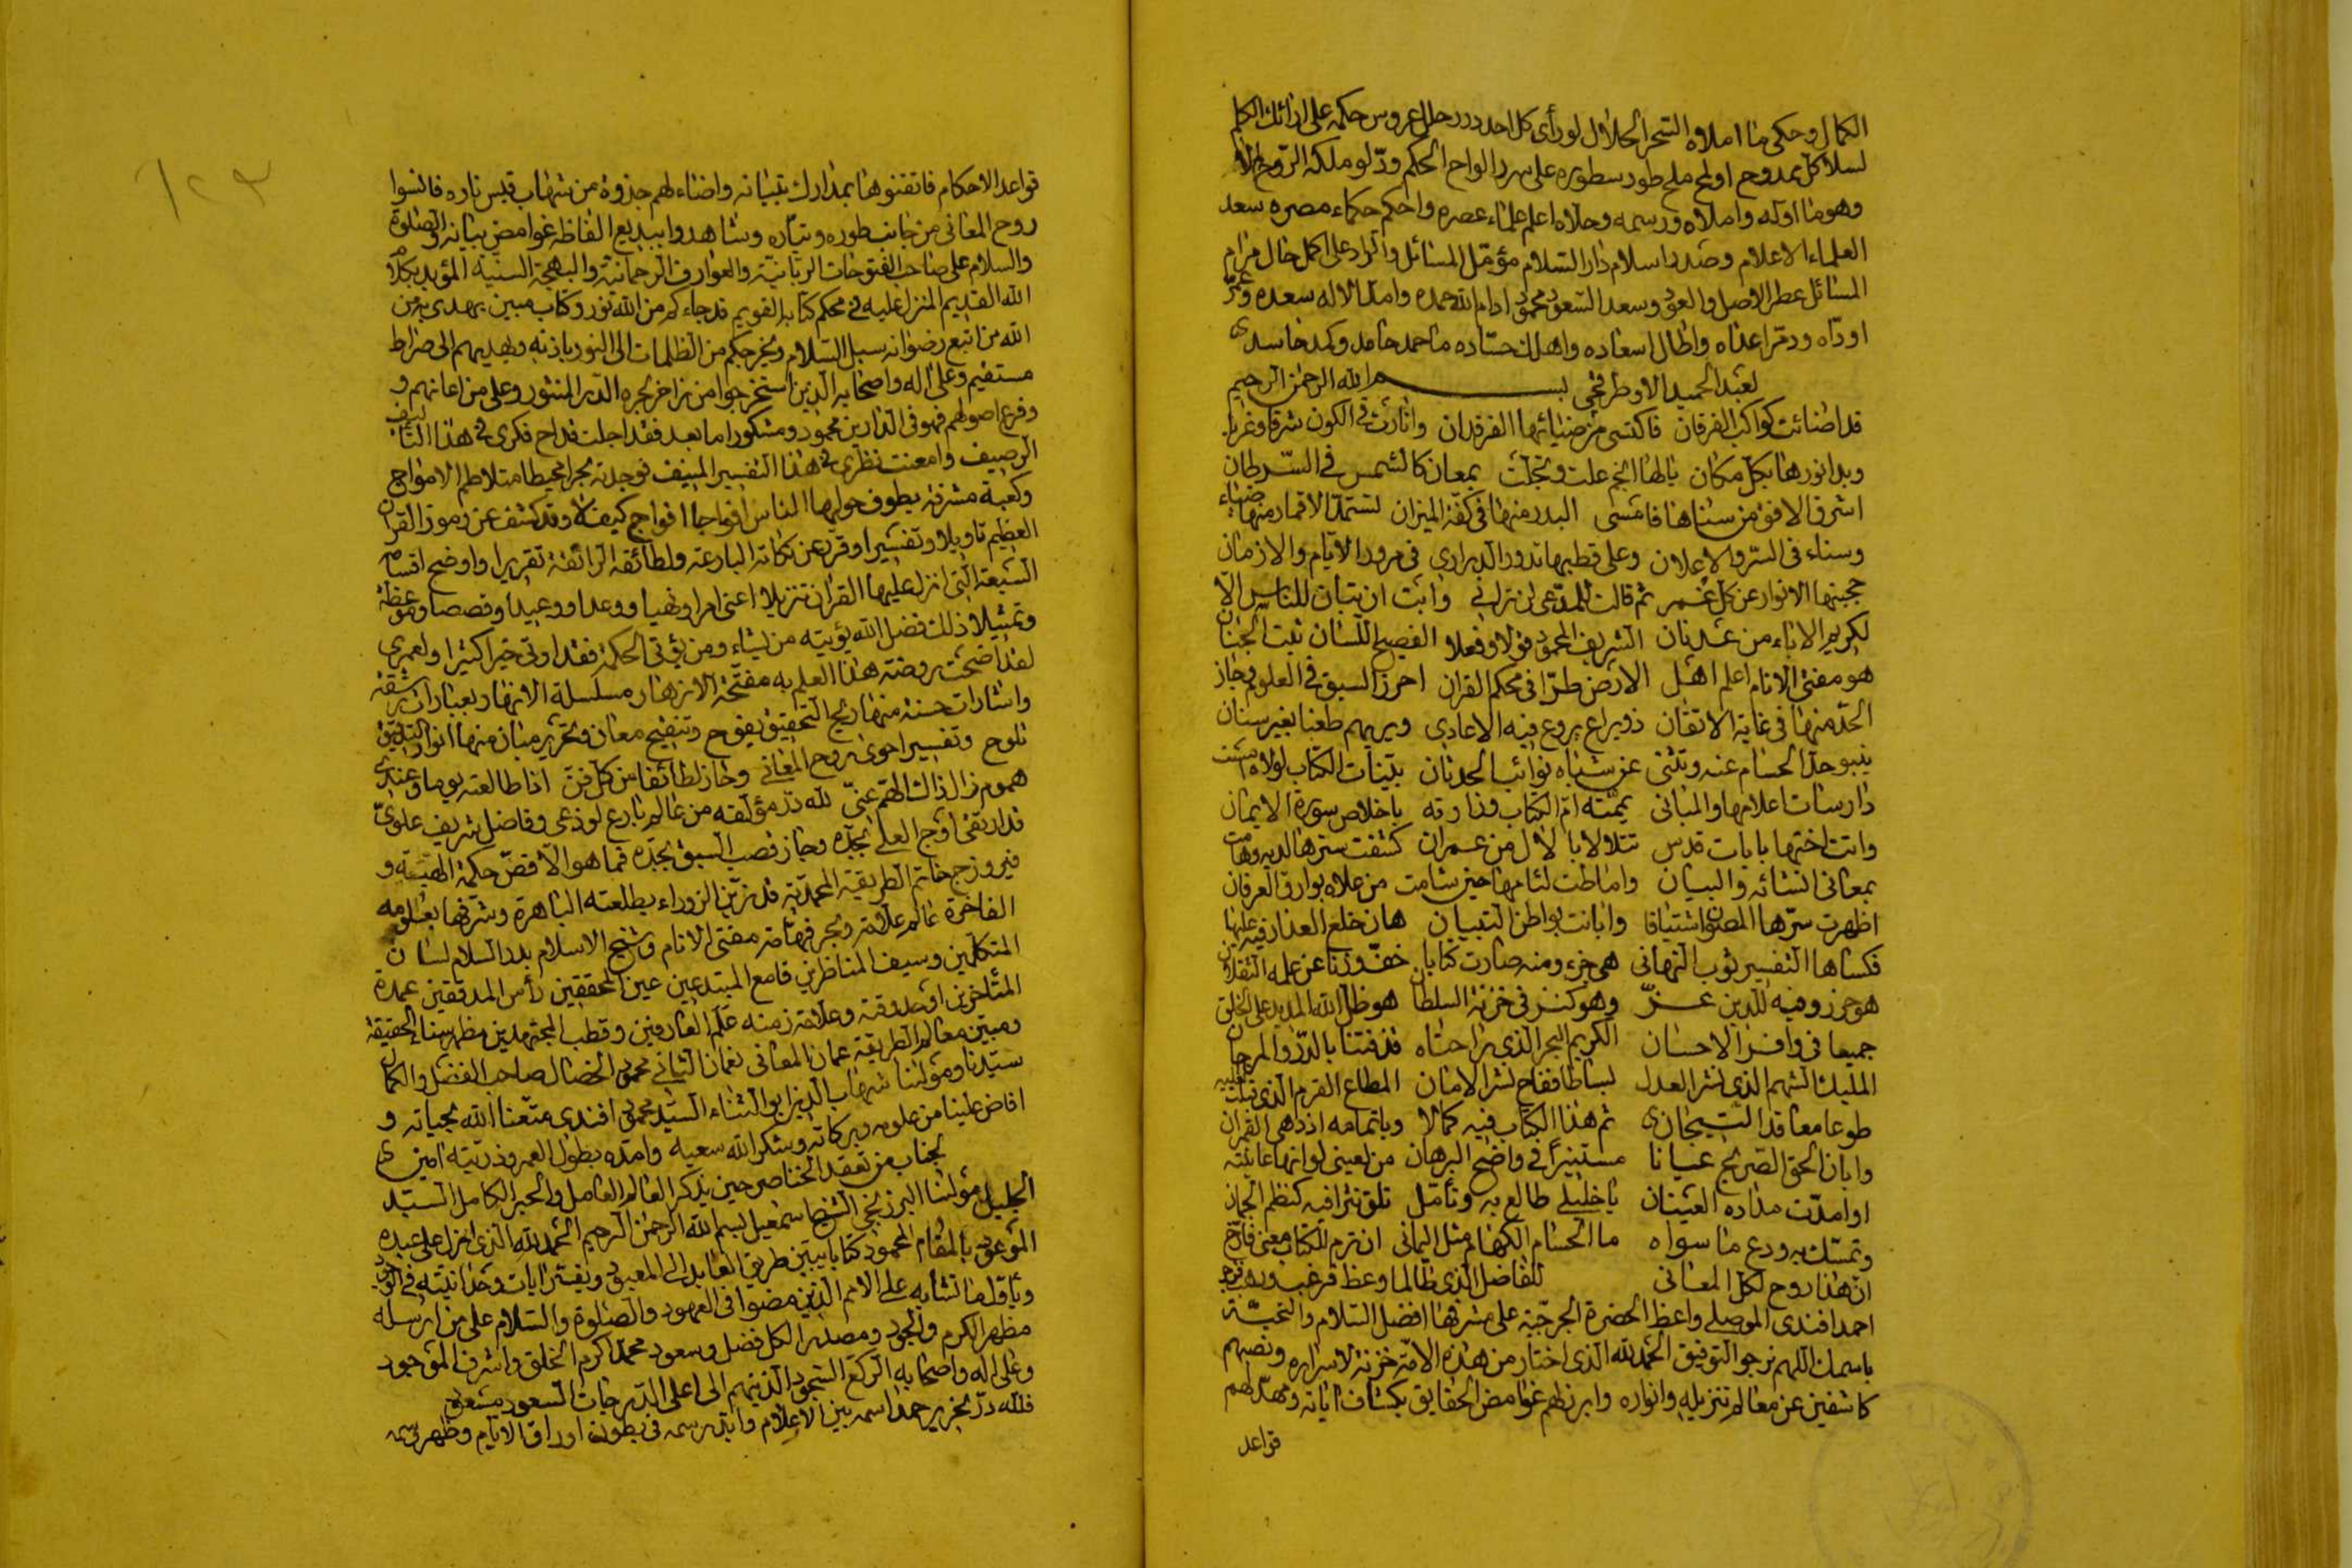 الكمال وحكى ما املاه السحر الحلال لو رأى كل احد درر حلل عروس حكمه على ارائك الكلم
لسلا كل ممدوح اولمح ملح طور سطوره على سرر الواح الحكم
وهو ما اوله واملاه ورسمه وحلاه اعلم علماء عصره واحكم حكماء مصره سعد
العلماء الاعلام وصدر اسلام دار السلام مؤمل المسائل والمراد على اكمل حال مرام
المسائل عطر الاصل والعود وسعد السعود محمود ادام الله حمده وامد الاله سعده وعمر
اودّاه ودمر اعداه واطال اسعاده واهلك حساده ما حمد حامد وكمد حاسد
لعبد الحميد الاوطرقجي بسم الله الرحمن الرحيم
قد اضائت كواكب الفرقان فاكتسى من ضيائها الفرقدان وانارت في الكون شرقا وغربا
وبدا نورها بكل مكان يا لها انجم علت وتجلت بمعان كالشمس في السرطان
اشرق الافق من سناها فامسى البدر منها في كفة الميزان تستمد الاقمار منها ضياء
وسناء في السر والاعلان وعلى قطبها تدور الدراري في مرور الايام والازمان
حجبتها الانوار عن كل غمر ثم قالت للمدعي لن تراني وابت ان تبان للناس الا
لكريم الاباء من عدنان الشريف المحمود قولا وفعلا الفصيح اللسان ثبت الجنان
هو مفتي الانام اعلم اهل الارض طرا في محكم القران احرز السبق في العلوم وحاز
الحد منها في غاية الاتقان ذو يراع يروع فيه الاعادي ويريهم طعنا بغير سنان
ينبو حد الحسام عنه وتثني عن شباه نوائب الحدثان بينات الكتاب لولاه امست
دارسات اعلامها والمباني يممته ام الكتاب فذارته باخلاص سورة الايمان
واتت اختها بايات قدس تتلالا بالال من عمران كشفت سترها لديه وهامت
بمعاني انشائه والبيان واماطت لثامها حين شامت من علاه بوارق العرفان
اظهرت سرها المصون اشتياقا وابانت بواطن التبيان هان خلع العذار فيه عليها
فكساها التفسير ثوب التهاني هي جزء ومنه صارت كتابا خف وزنا عن علمه الثقلان
هو حرز وفيه للدين عز وهو كنز في خزنة السلطان هو ظل الله المديد على الخلق
جميعا في وافر الاحسان الكريم البحر الذي راحتاه قذفتنا بالدر والمرجان
المليك الشهم الذي نشر العدل بساطا ففاح نشر الامان المطاع القرم الذي
طوعا معاقد التيجان ثم هذا الكتاب فيه كمالا وباتمامه ازدهى القمران
وابان الحق الصريح عيانا مستنيرا في واضح البرهان من لعيني لو انها عاينته
او امدت مداده العينان يا خليلي طالع به وتأمل تلق نثرا فيه كنظم الجمان
وتمسك به ودع ما سواه ما الحسام الكهام مثل اليماني ان ترم للكتاب معنى فارخ
ان هذا روح لكل المعاني للفاضل الذي طالما وعظ فرغب ورهب
احمد افندي الموصلي واعظ الحضرة الجرجيسية على مشرفها افضل السلام والتحية
باسمك اللهم نرجو التوفيق الحمد لله الذي اختار من هذه الامة خزنة لاسراره ونصبهم
كاشفين عن معالم تنزيله وانواره وابرز لهم غوامض الحقايق بكشاف اياته ومهد لهم
قواعد
١٢٣
قواعد الاحكام فاتقنوها بمدارك تبيانه واضاء لهم جذوة من شهاب قبس ناره فانسوا
روح المعاني من جانب طوره وتياره وشاهدوا ببديع الفاظه غوامض بيانه والصلوة
والسلام على صاحب الفتوحات الربانية والعوارف الرحمانية والبهجة السنية المؤيد بكلام
الله القديم المنزل عليه في محكم كتابه القويم قد جاءكم من الله نور وكتاب مبين يهدي به من
الله من اتبع رضوانه سبل السلام ويخرجكم من الظلمات الى النور باذنه ويهديهم الى صراط
مستقيم وعلى اله واصحابه الذين استخرجوا من زاخر بحره الدر المنثور وعلى من اعانهم و
وفرع اصولهم فهو في الدارين محمود ومشكور اما بعد فقد اجلت قداح فكري في هذا التأليف
الرصيف وامعنت نظري في هذا التفسير المنيف فوجدته بحرا محيطا متلاطم الامواج
وكعبة مشرفة يطوف حولها الناس افواجا افواج كيف لا وقد كشف عن رموز القران
العظيم تاويلا وتفسيرا وقرر عن نكاته البارعة ولطائفه الرائقة تقريرا واوضح اقسامه
السبعة التي انزل عليها القران تنزيلا اعني امرا ونهيا ووعدا ووعيدا وقصصا وموعظة
وتمثيلا ذلك فضل الله يؤتيه من يشاء ومن يؤتى الحكمة فقد اوتي خيرا كثيرا ولعمري
لقد اضحت روضة هذا العلم به مفتحة الازهار مسلسلة الانهار بعبارات رشيقة
واشارات حسنة منها ريح التحقيق يفوح وتنقيح معان وتحرير مبان منها انوار التدقيق
تلوح وتفسير احوى روح المعاني وحاز لطائفا من كل فن اذا طالعته يوما وعندي
هموم زال ذاك الهم عني لله در مؤلفه من عالم بارع لوذعي وفاضل شريف علوي
قد ارتقى اوج العلى بجده وحاز قصب السبق بجده فما هو الا فص حكمة الهية و
فيروزج خاتم الطريقة المحمدية قد زين الزوراء بطلعته الباهرة وشرفها بعلومه
الفاخرة عالم علامة وبحر فهامة مفتي الانام وشيخ الاسلام بدر السلام لسان
المتكلمين وسيف المناظرين قامع المبتدعين عين المحققين رأس المدققين عمدة
المتأخرين اوحد وقته وعلامة زمنه علم العارفين وقطب المجتهدين مظهر سناء الحقيقة
ومبين معالم الطريقة عمان المعاني نعمان الثاني محمود الخصال صاحب الفضل والكمال
سيدنا ومولنا شهاب الدين ابو الثناء السيد محمود افندي متعنا الله بحياته و
افاض علينا من علومه وبركاته وشكر الله سعيه وامده بطول العمر وذريته امين
لجناب من تعقد الخناصر حين يذكر العالم العامل والحبر الكامل السيد
الجليل مولنا البرزنجي الشيخ اسمعيل بسم الله الرحمن الرحيم الحمد لله الذي انزل على عبده
الموعود بالمقام المحمود كتابا يبين طريق العابد الى المعبود ويفسر ايات وحدانيته في الوجود
ويأول ما تشابه على الامم الذين مضوا في العهود والصلوة والسلام على من ارسله
مظهر الكرم والجود ومصدر الكل فضل وسعود محمد اكرم الخلق واشرف الموجود
وعلى اله واصحابه الركع السجود الذين هم الى اعلى الدرجات السعود
فلله در نحرير حمد اسمه بين الاعلام وابد رسمه في بطون اوراق الايام وظهر